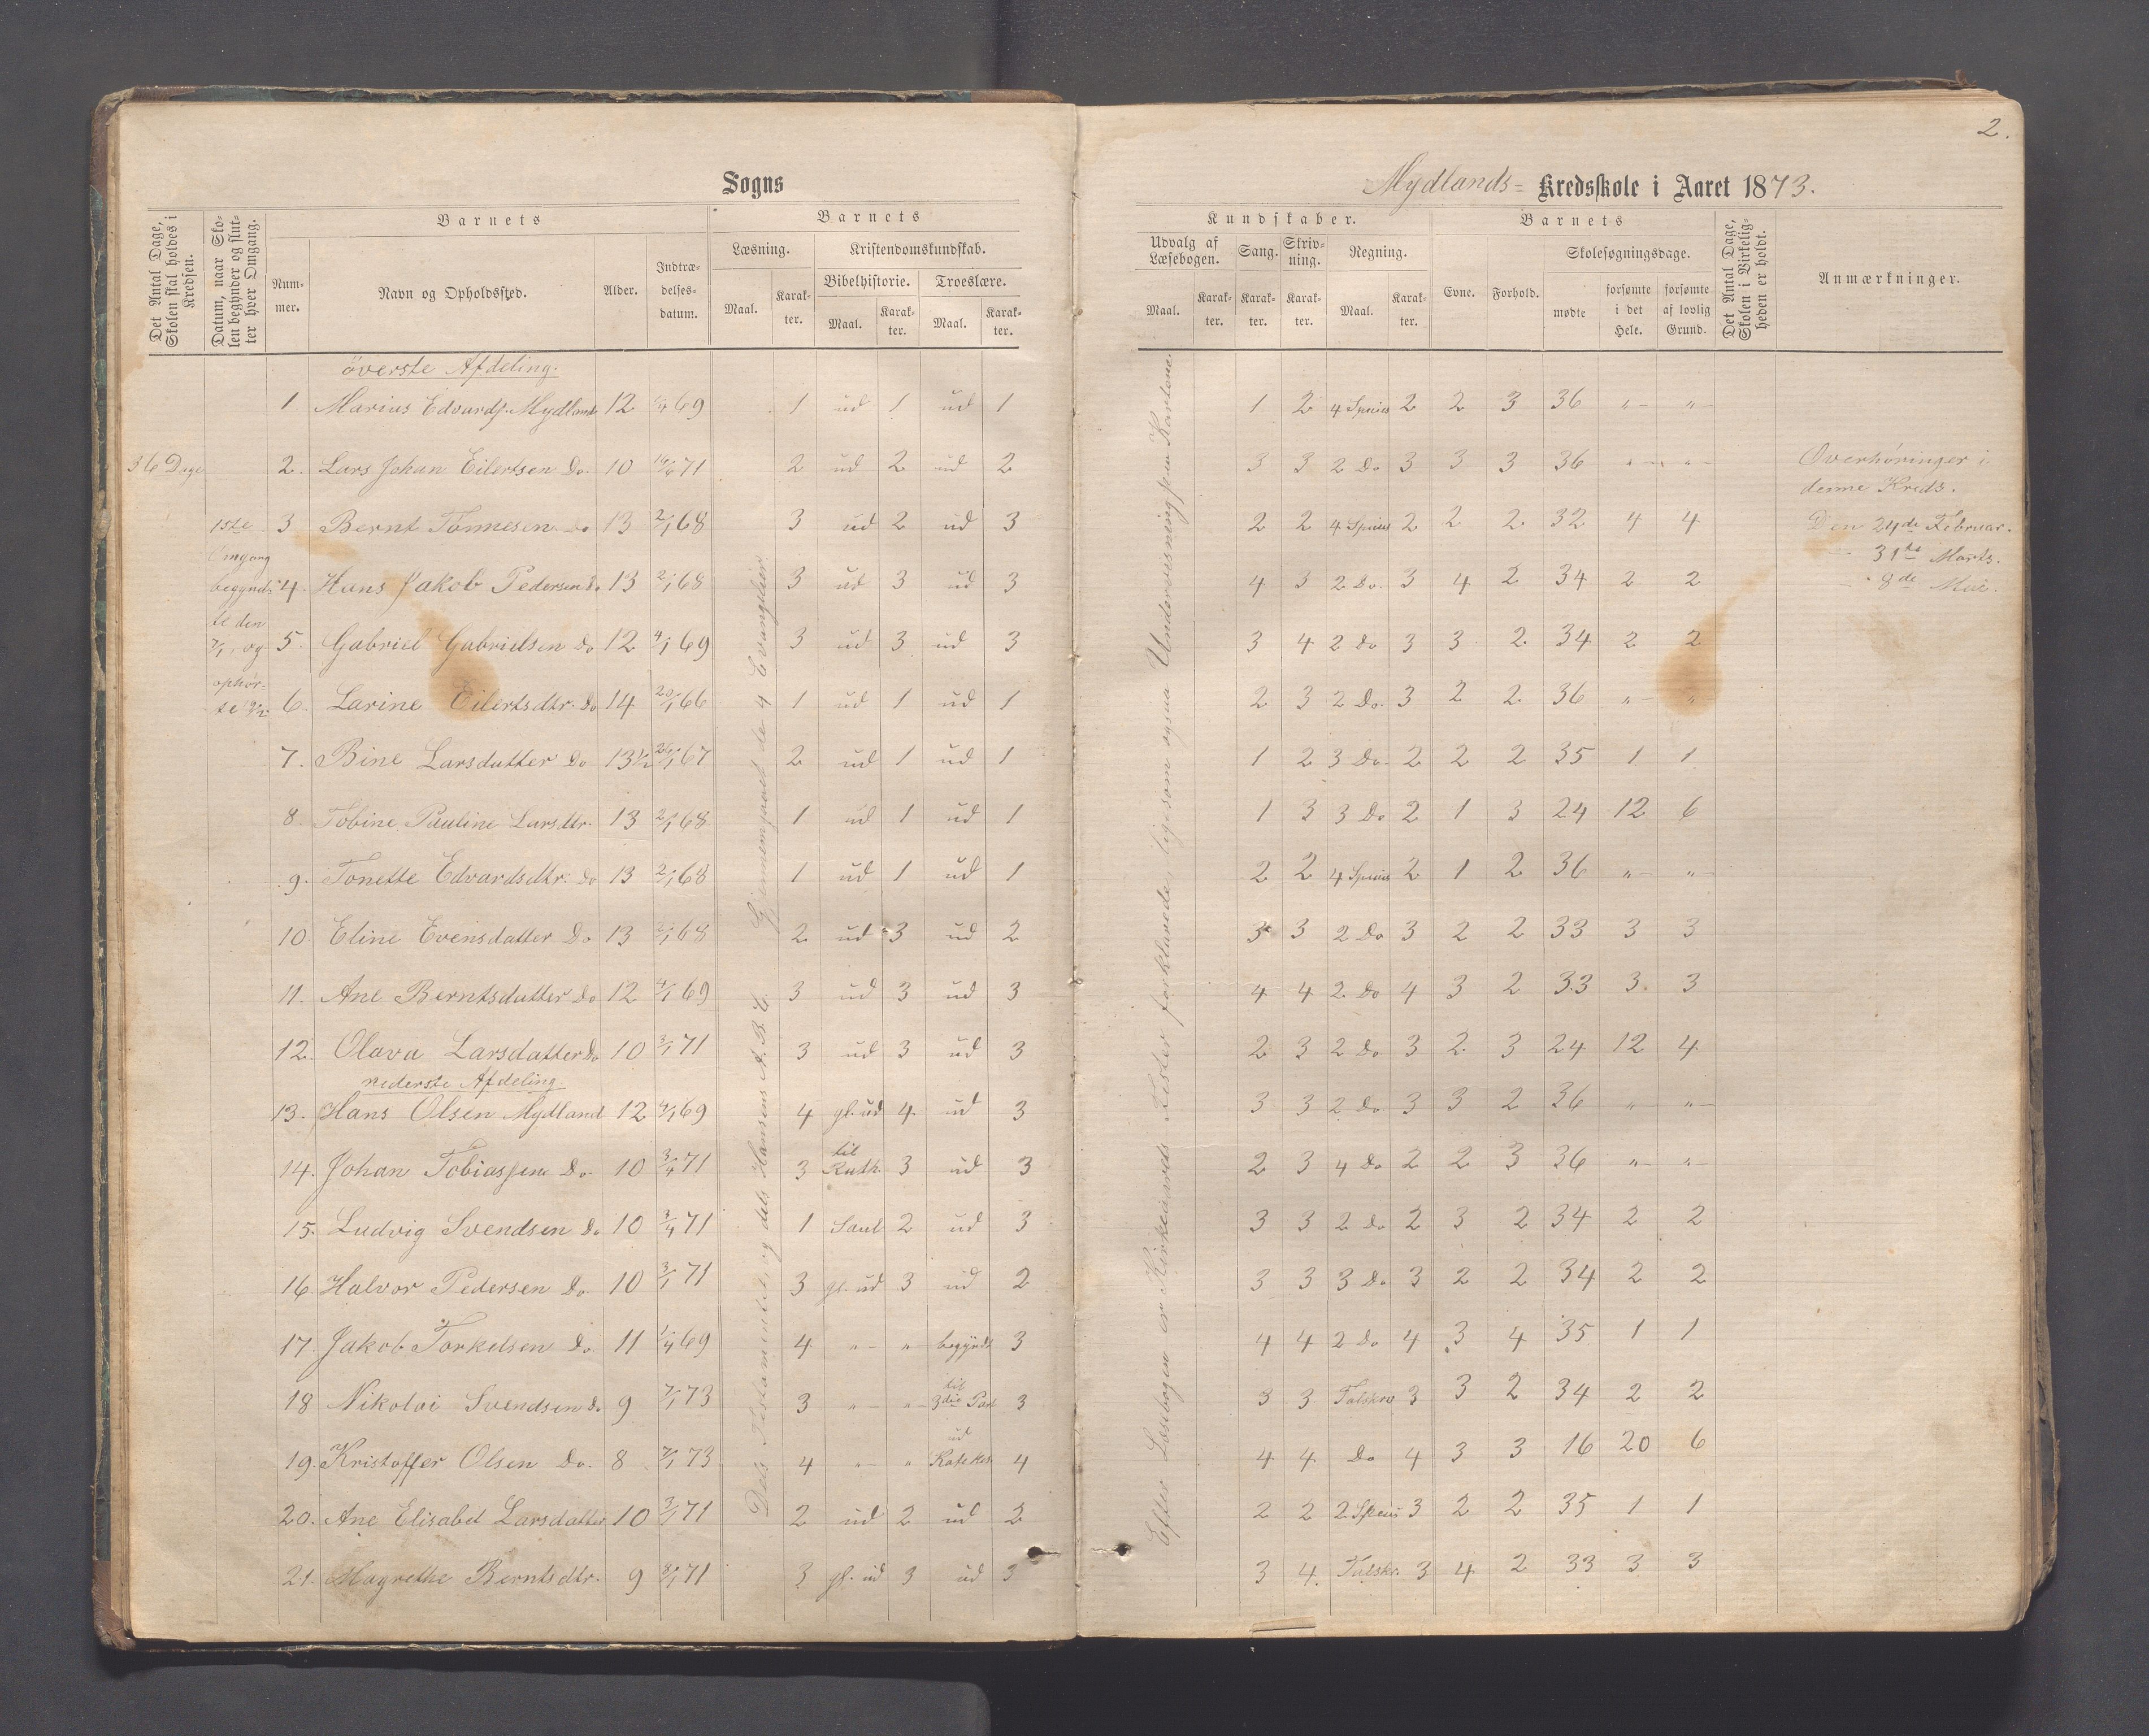 2.
Sogns
Mydlands= Kredsskole i Aaret 1873.
Det Antal Dage, Skolen skal holdes i Kredsen.
Datum, naar Skolen begynder og slutter hver Omgang.
Barnets
Nummer.
Navn og Opholdssted.
Alder.
Indtrædelsesdatum.
Barnets
Læsning.
Maal.
Karakter.
Kristendomskundskab.
Bibelhistorie.
Maal.
Karakter.
Troeslære.
Maal.
Karakter.
Kundskaber.
Udvalg af Læsebogen.
Maal.
Karakter.
Sang.
Karakter.
Skrivning.
Karakter.
Regning.
Maal.
Karakter.
Barnets
Evne.
Forhold.
Skolesøgningsdage.
mødte
forsømte i det Hele.
forsømte af lovlig Grund.
Det Antal Dage, Skolen i Virkeligheden er holdt.
Anmærkninger.
överste Afdeling.
1 Marius Edvards. Mydland 12 69 1 ud 1 ud 1 1 2 4 Species 2 2 3 36 "— "—
36 Dage
2. Lars Johan Eilertsen Do. 10 71 2 ud 2 ud 2 3 3 2 Do 3 3 3 36 "— "—
3 Bernt Tönnesen Do 13 2/1 68 3 ud 2 ud 3 2 2 4 Species 2 2 2 32 4 4
4. Hans Jakob Pedersen Do 13 2/1 68 3 ud 3 ud 3 4 3 2 Do. 3 4 2 34 2 2
5. Gabriel Gabrielsen Do 12 4/1 69 3 ud 3 ud 3 3 4 2 Do 3 3 2 34 2 2
6. Larine Eilertsdtr. Do 14 20/1 66 1 ud 1 ud 1 2 3 2 Do. 3 2 2 36 "— "
7. Bine Larsdatter Do 13½ 67 2 ud 1 ud 1 1 2 3 Do. 2 2 2 35 1 1
8. Tobine Pauline Larsdtr. 13 2/1 68 1 ud 1 ud 1 1 3 3 Do 2 1 3 24 12 6
9. Tonette Edvardsdtr. Do 13 2/1 68 1 ud 1 ud 1 2 2 4 Species 2 1 2 36 "— "—
10. Eline Evensdatter Do 13 2/1 68 2 ud 3 ud 2 3 3 2 Do 3 2 2 33 3 3
11. Ane Berntsdatter Do 12 4/1 69 3 ud 3 ud 3 4 4 2 Do 4 3 2 33 3 3
12. Olava Larsdatter Do 10 3/1 71 3 ud 3 ud 3 2 3 2 Do 3 2 3 24 12 4
nederste Afdeling.
13. Hans Olsen Mydland 12 4/1 69 4 gl. ud 4 ud 3 3 3 2 Do 3 3 2 36 "— "—
14. Johan Tobiassen Do 10 3/4 71 3 til Ruth 3 ud 3 2 3 4 Do 2 2 3 36 "— "—
15. Ludvig Svendsen Do 10 3/4 71 1 Saul 2 ud 3 3 3 2 Do 2 3 2 34 2 2
16. Halvor Pedersen Do 10 3/1 71 3 gl. ud 3 ud 2 3 3 3 Do 3 2 2 34 2 2
17. Jakob Torkelsen Do. 11 1/4 69 4 "— "— begyndt 3 4 4 2 Do 4 3 4 35 1 1
18 Nikolai Svendsen Do 9 7/1 73 3 "— "— til 3die Part 3 3 3 Talskr. 3 3 2 34 2 2
19. Kristoffer Olsen Do. 8 7/1 73 4 "— " ud Katekes 4 4 4 Do 4 3 3 16 20 6
20. Ane Elisabet Larsdatter 10 3/1 71 2 ud 2 ud 2 2 2 2 Species 3 2 2 35 1 1
21. Magrethe Berntsdtr. 9 71 3 gl. ud 3 ud 3 3 4 Talskr. 3 4 2 33 3 3
1ste
Omgang
begyndte
den
7/1, og
ophör-
te
Dels Testamentet, og dels Hansens A.B.C. Gjennemgaaet de 4 Evangelier
Efter Læsebogen er Kirkeaarets Fester forklarede, ligesom ogsaa Undervisning paa Kartene.
Overhøringer i
denne Kreds.
Den 24de Februar.
31te Marts.
8de Mai.